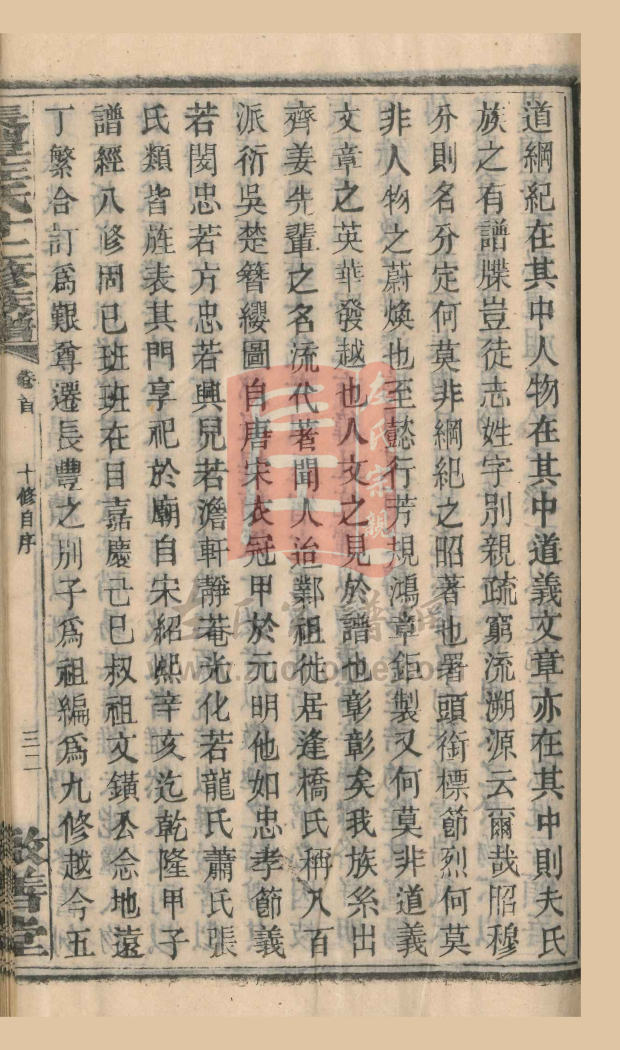 道綱紀在其中人物在其中道義文章亦在其中則夫氏
族之有譜牒豈徒志姓字別親疏窮流溯源云爾哉昭穆
分則名分定何莫非綱紀之昭著也署頭銜標節烈何莫
非人物之蔚煥也至懿行芳規鴻章鉅製又何莫非道義
文章之英華發越也人文之見於譜也彰彰矣我族系出
齊姜先輩之名流代著聞人迨鄴祖徙居逢橋氏稱八百
派衍吳楚簪纓圖自唐宋衣冠甲於元明他如忠孝節義
若閔忠若方忠若興兒若澹軒靜菴光化若龍氏蕭氏張
氏類皆旌表其門享祀於廟自宋紹熙辛亥迄乾隆甲子
譜經八修固已班班在目嘉慶己巳叔祖文鐄公念地遠
丁繁合訂爲艱尊遷長豐之別子爲祖編爲九修越今五
左氏十二修族譜
卷首
十修自序
三二
敬善堂
左氏宗親
左氏家譜網